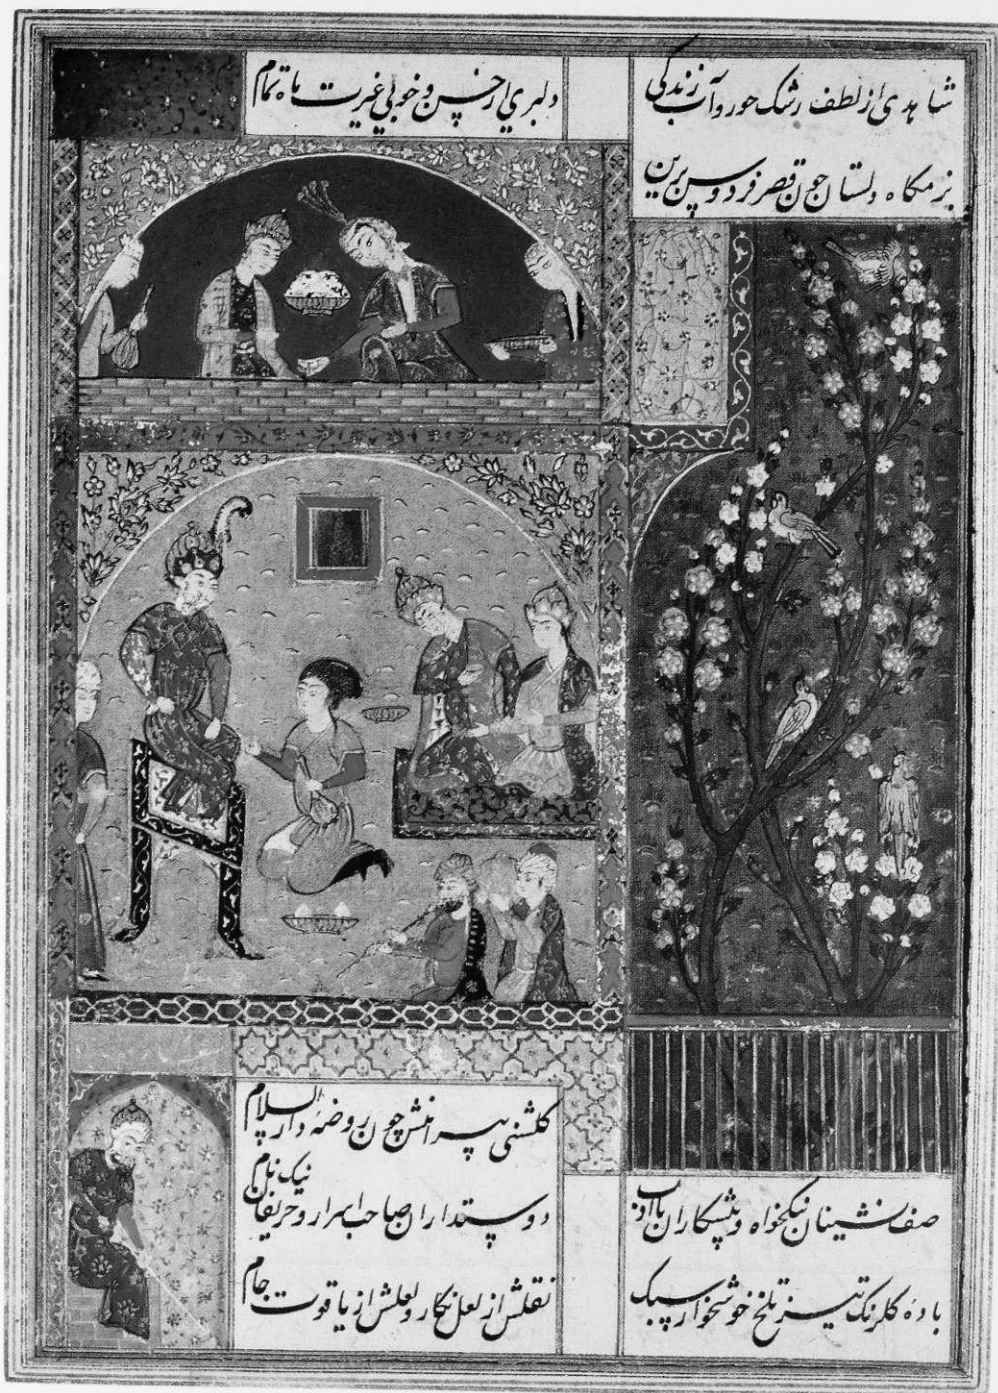 شاهدی از لطف رشک حور و آب زندگی
دلبری از حسن و خوبی غیرت ماه تمام
بزمگاه دلستان چون قصر فردوس برین
گلشنی پیرامنش چون روضهٔ دارالسلام
صف نشینان نیکخواه و پیشکاران باادب
دوستداران صاحب اسرار و حریفان نیک نام
بادهٔ کلرنک تیز تلخ خوشخوار سبک
نقلش از لعل نکار و لعلش از یاقوت جام